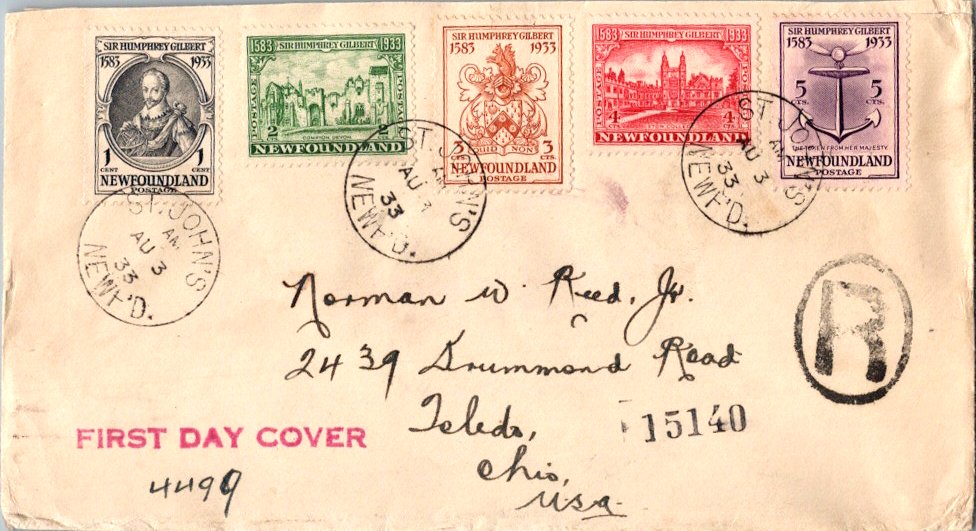 SIR HUMPHREY GILBERT
1583 1933
1 1
CENT CENT
NEWFOUNDLAND
POSTAGE
1583 SIR HUMPHREY GILBERT 1933
POSTAGE POSTAGE
COMPTON, DEVON
2 2
NEWFOUNDLAND
SIR HUMPHREY GILBERT
1583 1933
QUID NON
3 3
CTS. CTS.
NEWFOUNDLAND
POSTAGE
1583 SIR HUMPHREY GILBERT 1933
POSTAGE POSTAGE
4 4
CTS. CTS.
NEWFOUNDLAND
SIR HUMPHREY GILBERT
1583 1933
5 5
CTS. CTS.
THE TOKEN FROM HER MAJESTY.
NEWFOUNDLAND
POSTAGE
ST. JOHN'S
AM
AU 3
33
NEWF'D.
ST. JOHN'S
AM
AU 3
33
NEWF'D.
ST. JOHN'S
AM
AU 3
33
NEWF'D.
Norman W. Reed, Jr.
2439 Drummond Road
Toledo,
Ohio,
USA
R
15140
FIRST DAY COVER
4499